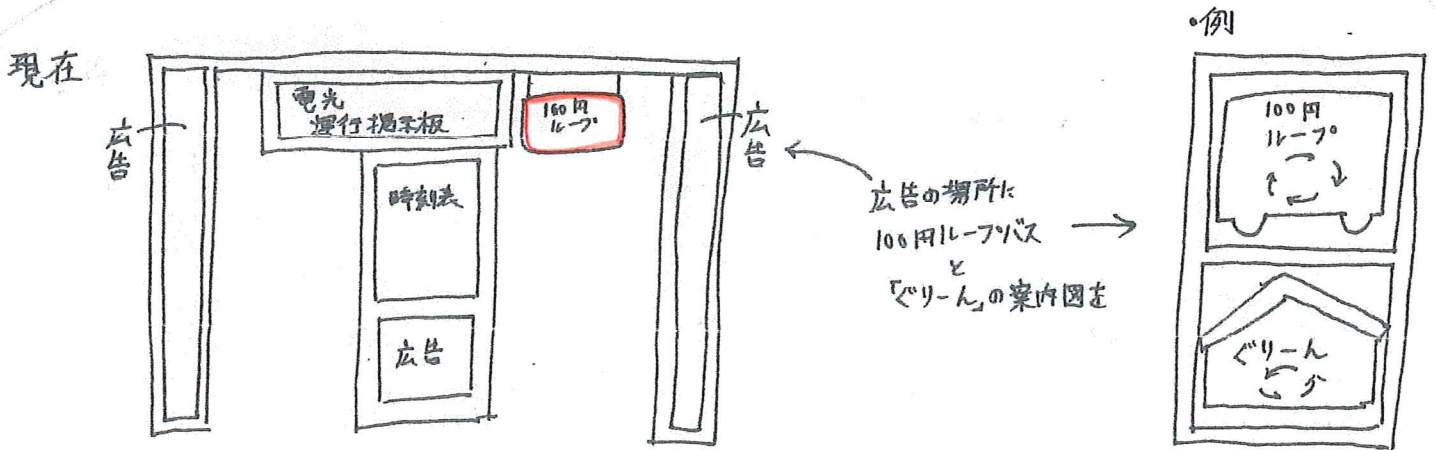 現在
広告
電光
運行掲示板
100円
ループ
広告
時刻表
広告
広告の場所に
100円ループバス
と
「ぐりーん」の案内図を
・例
100円
ループ
ぐりーん